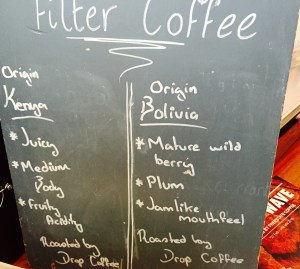 Filter Coffee
Origin
Kenya
* Juicy
* Medium
Body
* Fruity
Acidity
Roasted by
Drop Coffee
Origin
Bolivia
* Mature wild
berry
* Plum
* Jamlike
mouthfeel
Roasted by
Drop Coffee
WAVE